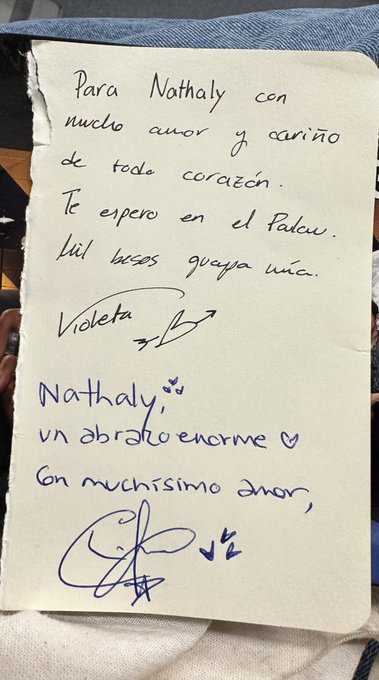 Para Nathaly con
mucho amor y cariño
de todo corazón.
Te espero en el Palau.
Mil besos guapa mía.
Violeta
Nathaly,
un abrazo enorme
Con muchísimo amor,